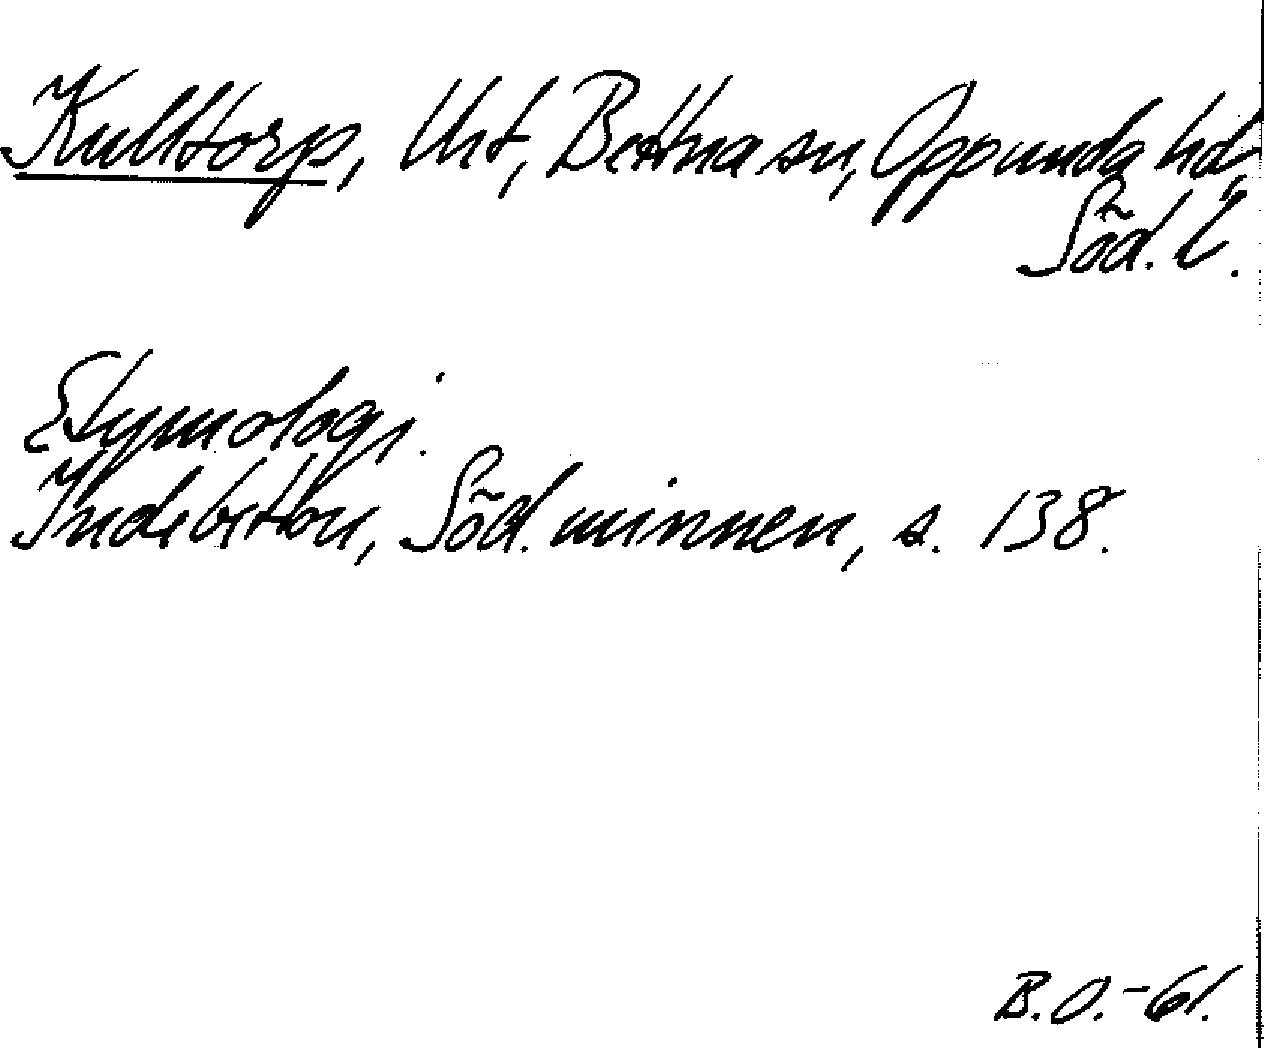 Kulltorp, Uht, Bettna sn, Oppunda hd,
Söd. l.
Etymologi.
Indebetou, Söd. minnen, s. 138.
B.O.-61.